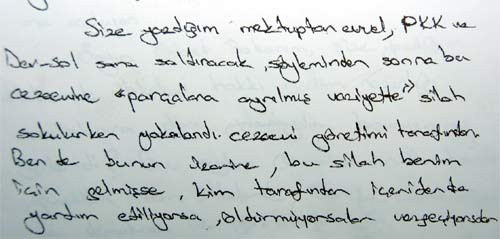 Size yazdığım mektuptan evvel, PKK ve
Dev-sol sana saldıracak, söyleminden sonra bu
cezaevine "parçalara ayrılmış vaziyette" silah
sokulurken yakalandı. cezaevi yönetimi tarafından.
Ben de bunun üzerine, bu silah benim
için gelmişse, kim tarafından içeriden de
yardım ediliyorsa, öldürmüyorsalar vazgeçiyorsalar